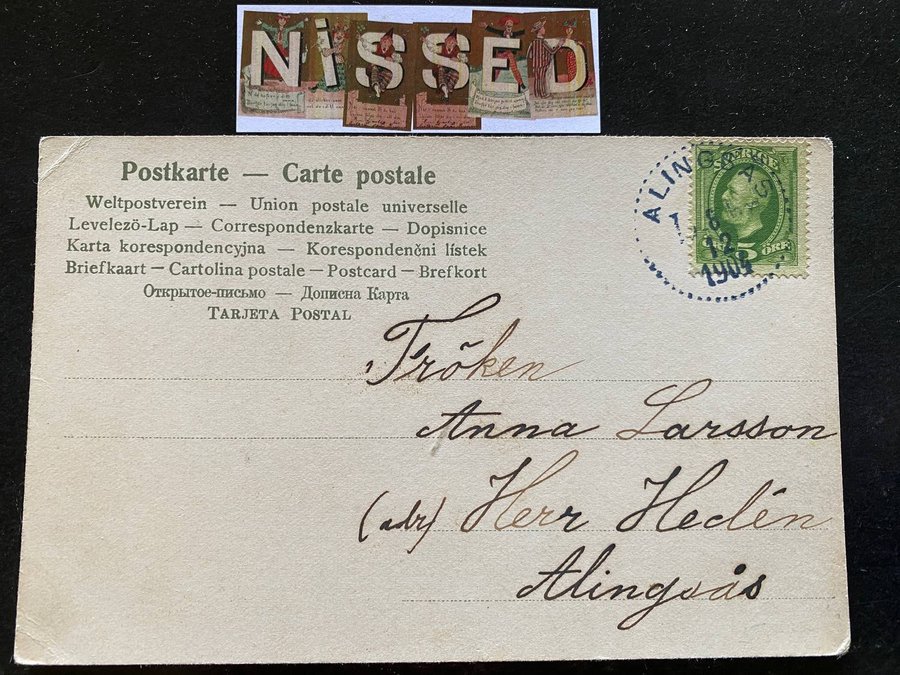 NiSSED
Postkarte — Carte postale
Weltpostverein — Union postale universelle
Levelezö-Lap — Correspondenzkarte — Dopisnice
Karta korespondencyjna — Korespondenčni lístek
Briefkaart — Cartolina postale — Postcard — Brefkort
Открытое-письмо — Дописна Карта
TARJETA POSTAL
ALINGSÅS
6
12
SVERIGE
5 ÖRE
Fröken
Anna Larsson
(adr) Herr Hedén
Alingsås